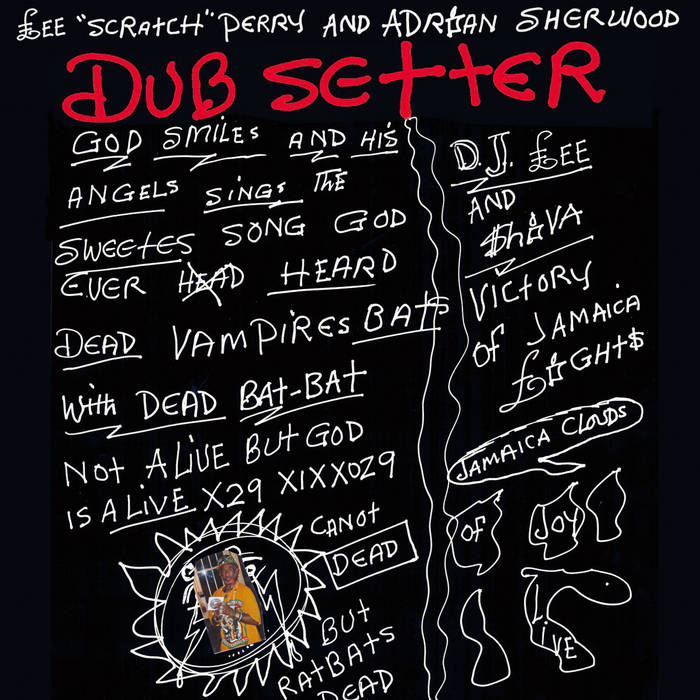 £EE "SCRATCH" PERRY AND ADRIAN SHERWOOD
DUB SETTER
GOD SMILES AND HIS
ANGELS SINGS THE
SWEETES SONG GOD
EVER HEAD HEARD
DEAD VAMPIRES BATS
WITH DEAD BAT-BAT
NOT ALIVE BUT GOD
IS ALIVE X29 XIXXOZ9
CANOT
DEAD
BUT
RATBATS
DEAD
D.J. £EE
AND
$HIVA
VICTORY
OF JAMAICA
£IGHT$
JAMAICA CLOUDS
OF JOY
LIVE